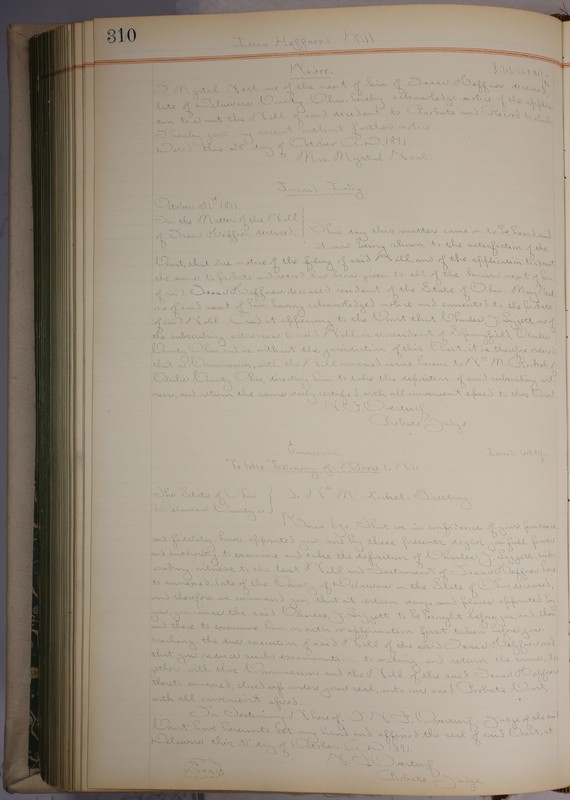 310
Isaac Heffner's Will
Waiver.
I Myrtal Neal one of the next of kin of Isaac Heffner deceased
late of Delaware County, Ohio, hereby acknowledge notice of the applica-
tion to admit the Will of said decedent to Probate and Record to which
I hereby give my assent without further notice
Dated this 28 day of October A.D. 1891
Mrs. Myrtal Neal
Journal Entry
October 31st 1891
In the Matter of the Will
of Isaac Heffner deceased
This day this matter came on to be heard and
it now being shown to the satisfaction of the
Court, that due notice of the filing of said Will, and of the application to admit
the same to probate and record has been given to all of the known next of kin
of said Isaac Heffner deceased, resident of the State of Ohio
one of said next of kin having acknowledged notice and consented to the probate
of said Will. And it appearing to the Court that Charles J. one of
the subscribing witnesses to said Will is a resident of Springfield, Clarke
County, Ohio and is without the jurisdiction of this Court, it is therefore ordered
that a Commission, with the Will annexed issue herein to Wm M.
Clarke County, Ohio, directing him to take the deposition of said subscribing wit-
ness, and return the same duly certified with all convenient speed to this Court
Probate Judge
Commission
To take Testimony of Witness to Will
The State of Ohio
Delaware County ss
To Wm M. Greeting
Know ye, that we in confidence of your prudence
and fidelity, have appointed you and by these presents do give you full power
and authority to examine and take the deposition of Charles J. sub-
scribing witness to the Last Will and Testament of Isaac Heffner here-
to annexed, late of the County of Delaware in the State of Ohio deceased,
and therefore we command you that at certain days and places appointed by
you, you cause the said Charles J. to be brought before you and then
and there to examine him on oath or affirmation first taken before you
touching the due execution of said Will of the said Isaac Heffner and
that you reduce such examination to writing and return the same, to-
gether with this Commission and the Will of the said Isaac Heffner
thereto annexed, closed up under your seal, into our said Probate Court,
with all convenient speed.
In Testimony Whereof, I Judge of the said
Court have hereunto set my hand and affixed the seal of said Court, at
Delaware this 31 day of October A.D. 1891
Probate Judge